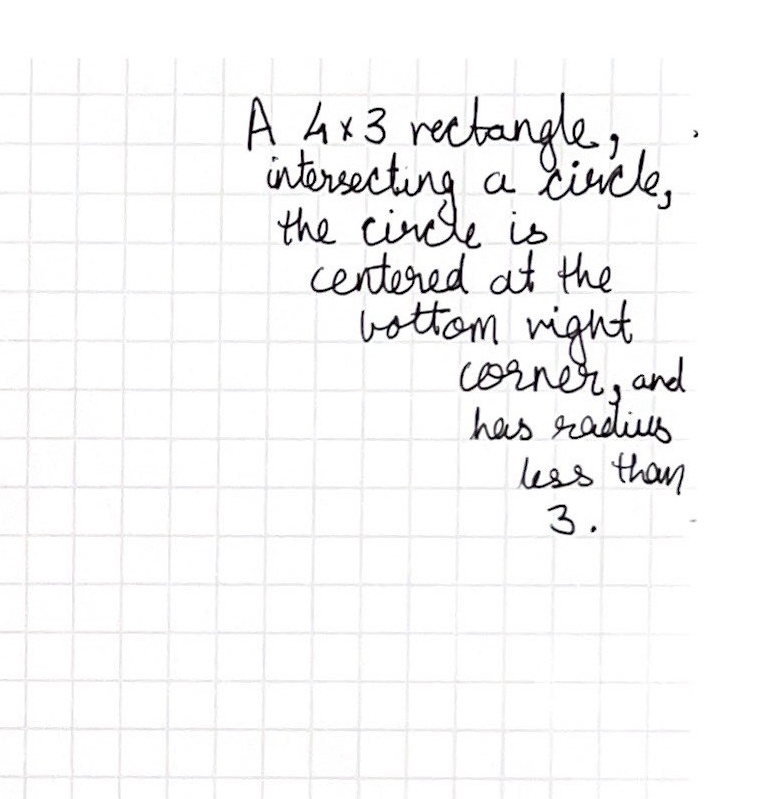 A 4x3 rectangle,
intersecting a circle,
the circle is
centered at the
bottom right
corner, and
has radius
less than
3.